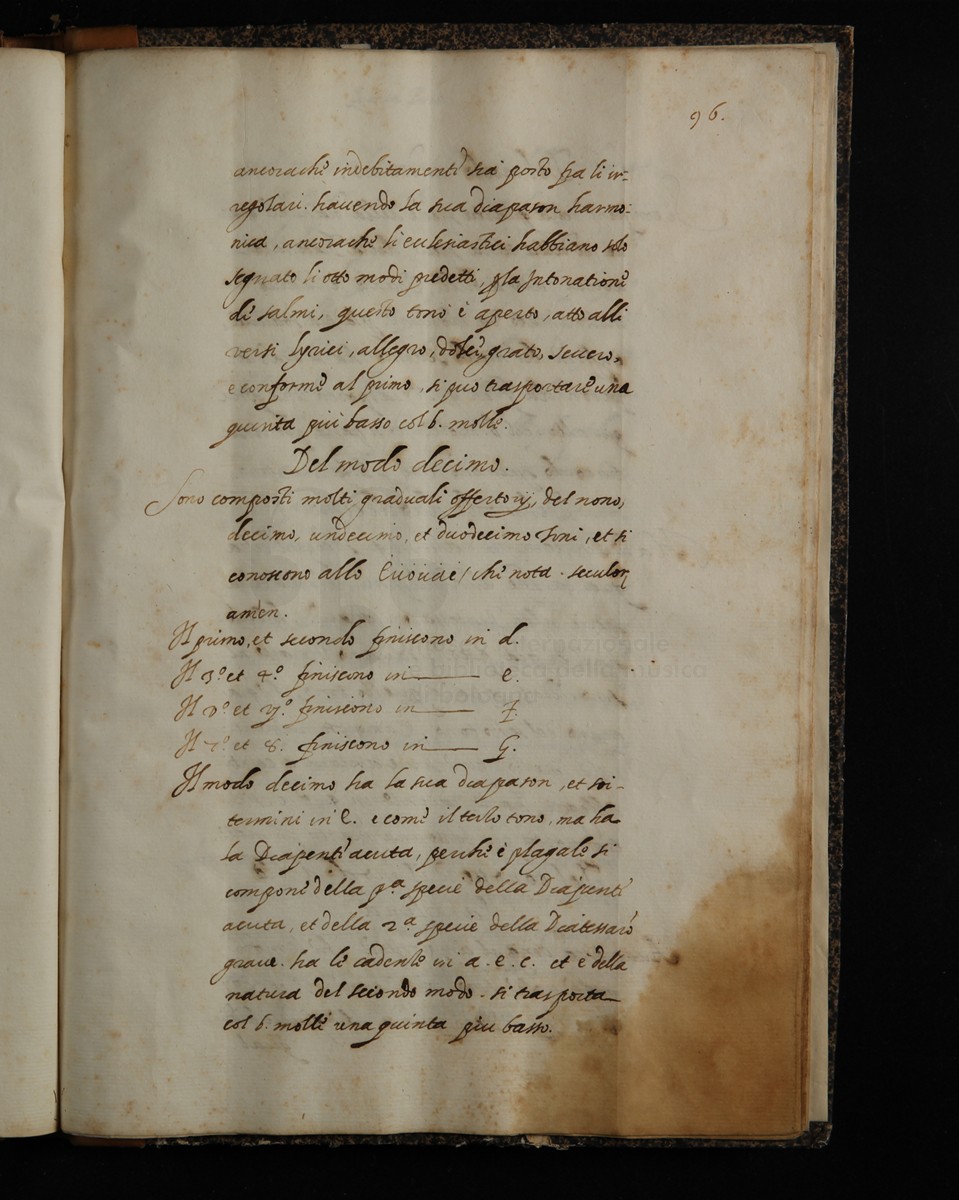 96.
ancorache indebitamente sia posto fra li ir-
regolari. hauendo la sua diapason harmo-
nica, ancorache li eclesiastici habbiano solo
segnato li otto modi predetti, p la Intonatione
de salmi, questo tono è aperto, atto alli
versi lyrici, allegro, dolce, grato, seuero,
e conforme al primo, si puo trasportare una
quinta più basso col b. molle.
Del modo decimo.
Sono composti molti graduali offertorij, del nono,
decimo, undecimo, et duodecimo Toni, et si
conoscono allo Euouae / che nota. seculor
amen.
Il primo, et secondo finiscono in d.
Il 3º et 4º finiscono in e.
Il et finiscono in F.
Il 7º et 8. finiscono in G.
Il modo decimo ha la sua diapason, et soi
termini in E. e come il terzo tono, ma ha
la Diapente acuta, perche è plagale si
compone della pª specie della Diapente
acuta, et della 2ª specie della Diatessarõ
graue. ha le cadenze in a. e. c. et è della
natura del secondo modo. si trasporta
col b. molle una quinta piu basso.
internazionale
e biblioteca della musica
di Bologna